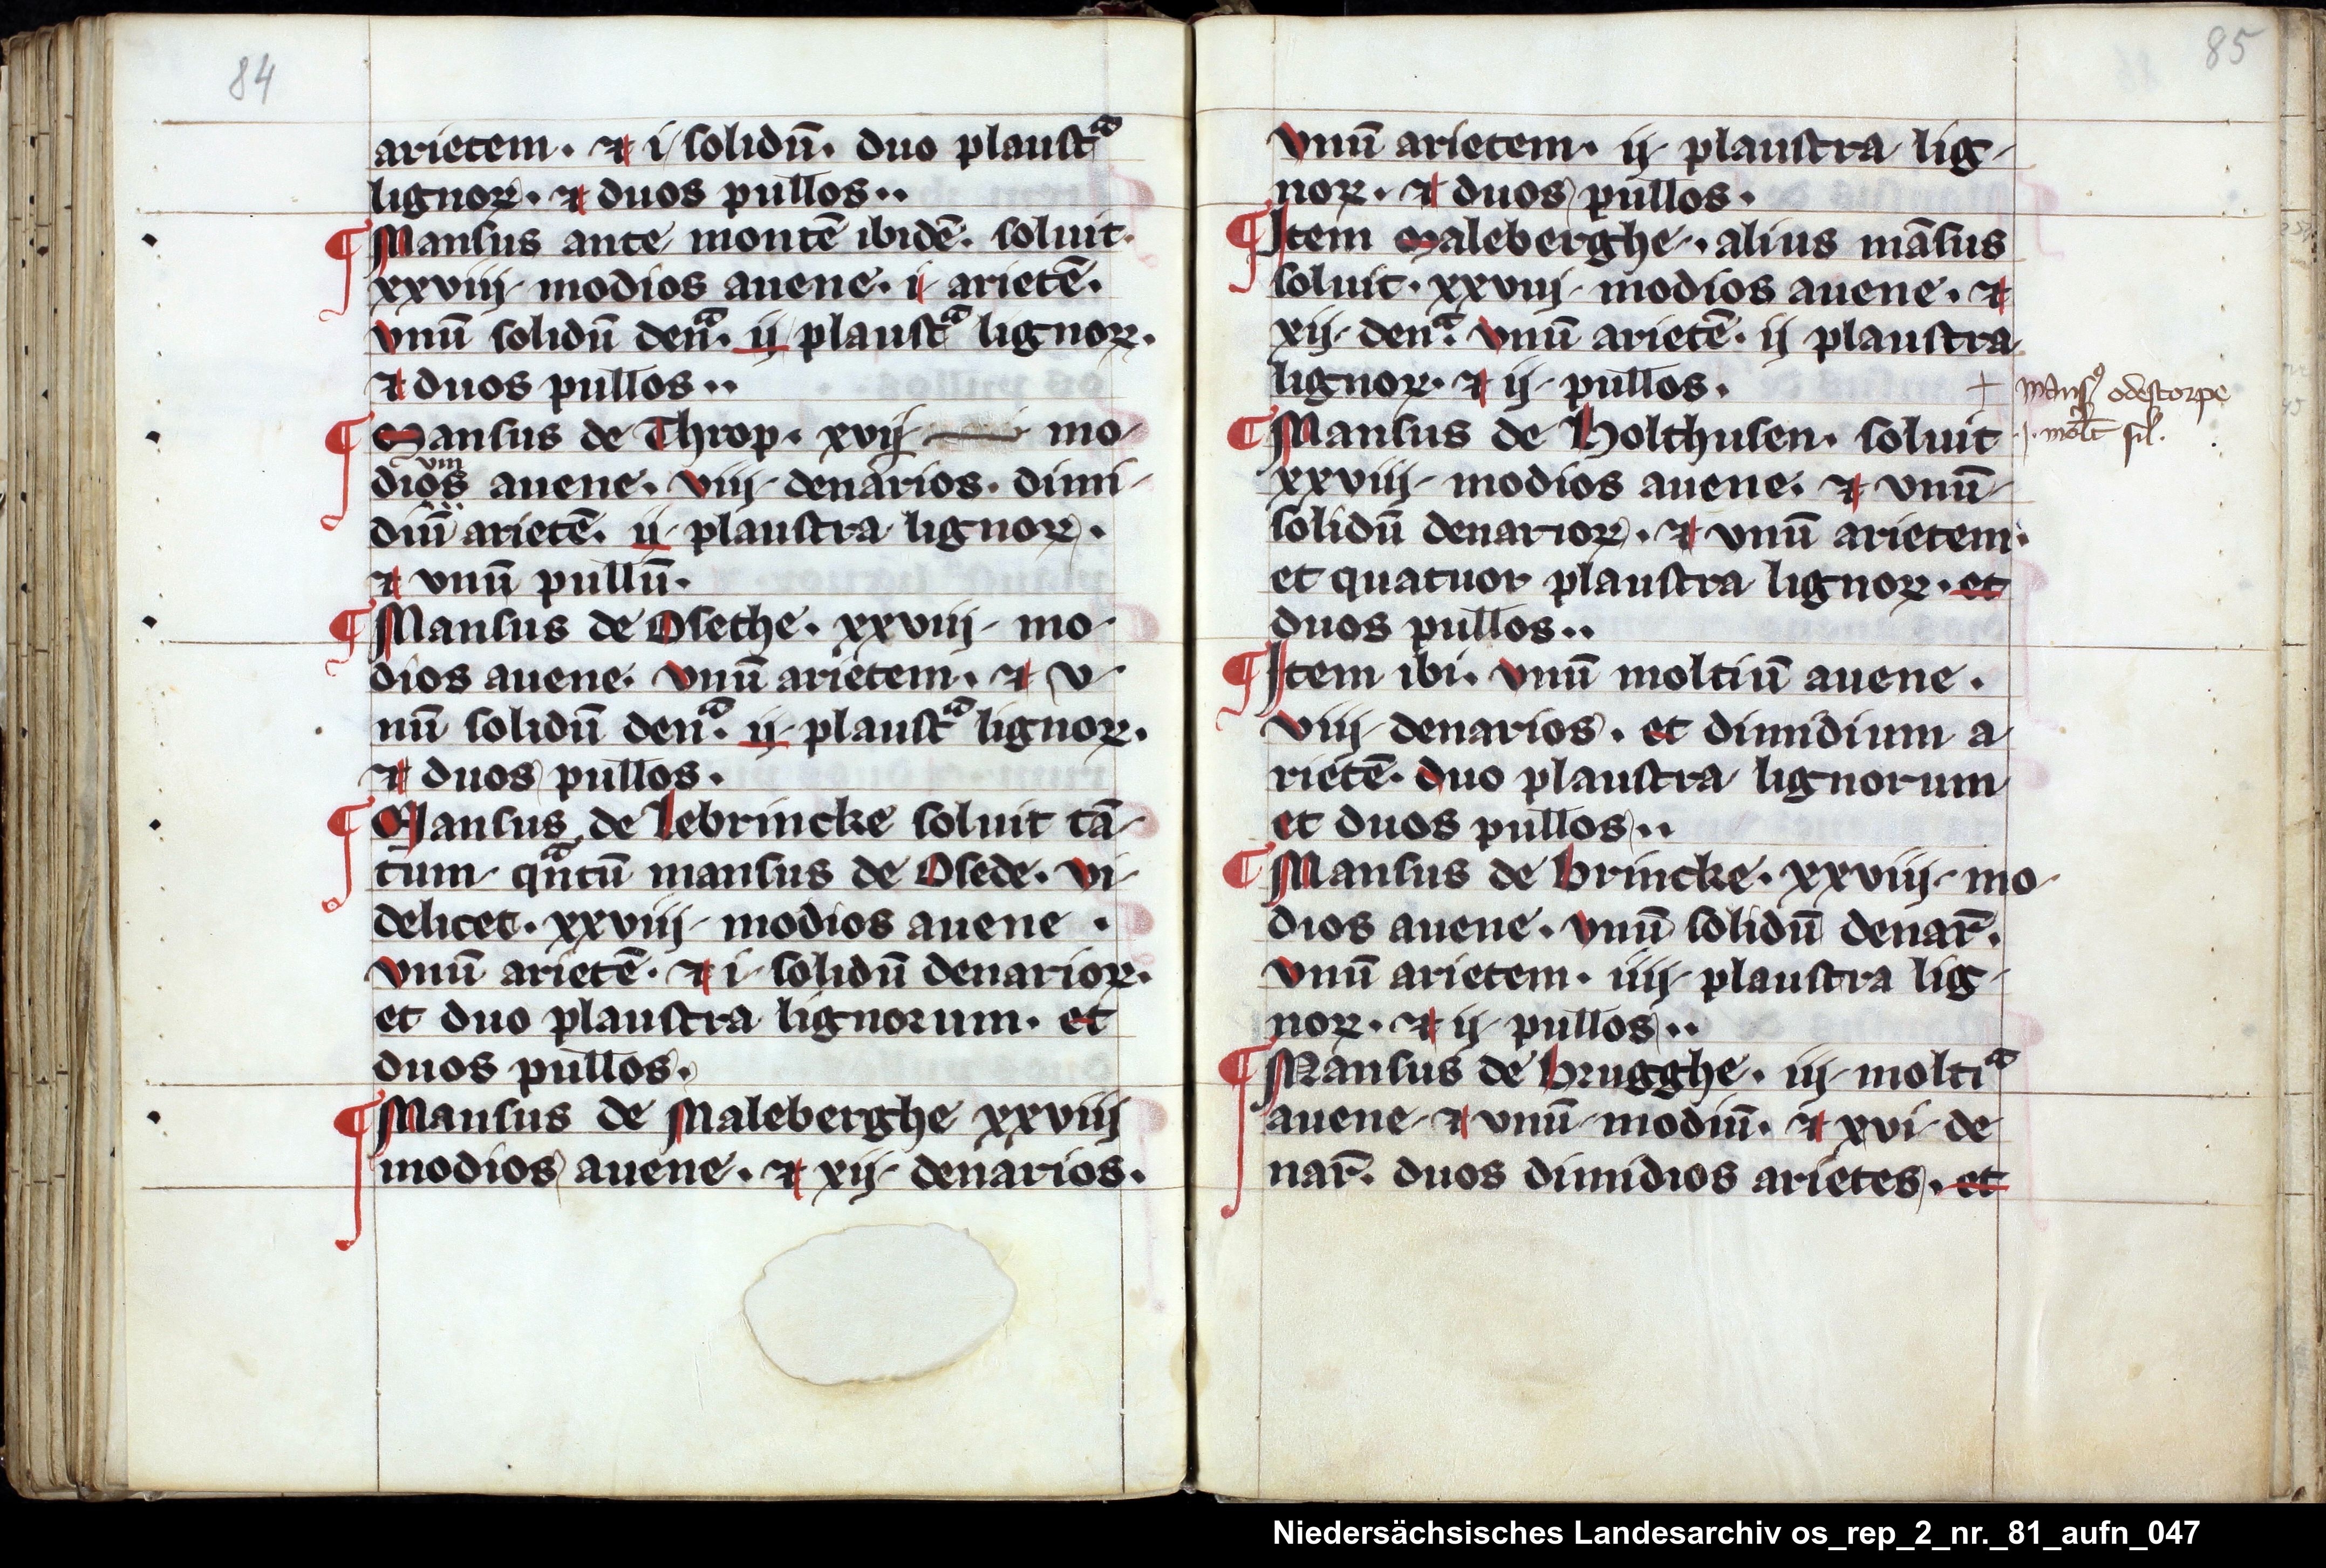 84
arietem. ⁊ i solidū. duo plaustᵃ
lignoꝝ. ⁊ duos pullos..
¶ Mansus ante montē ibidē. soluit.
xxviij modios auene. i arietē.
vnū solidū denᵃ. ij plaustᵃ lignoꝝ.
⁊ duos pullos..
¶ Mansus de Throp. xvij mo
viii
dios auene. viij denarios. dimi
diū arietē. ij plaustra lignoꝝ.
⁊ vnū pullū.
¶ Mansus de Osethe. xxviij mo
dios auene. vnū arietem. ⁊ v
nū solidū denᵃ. ij plaustᵃ lignoꝝ.
⁊ duos pullos.
¶ Mansus de Lebrincke soluit tā
tum qᵃntū mansus de Osede. vi
delicet. xxviij modios auene.
vnū arietē. ⁊ i solidū denarioꝝ.
et duo plaustra lignorum. et
duos pullos.
¶ Mansus de Maleberghe xxviij
modios auene. ⁊ xij denarios.
85
vnū arietem. ij plaustra lig
noꝝ. ⁊ duos pullos.
¶ Item Maleberghe. alius māsus
soluit. xxviij modios auene. ⁊
xij denᵃ. vnū arietē. ij plaustra
lignoꝝ. ⁊ ij pullos.
+ mansꝰ odestorpe
j. molt sil.
¶ Mansus de Holthusen. soluit
xxviij modios auene. ⁊ vnū
solidū denarioꝝ. ⁊ vnū arietem.
et quatuor plaustra lignoꝝ. et
duos pullos..
¶ Item ibi. vnū moltiū auene.
viij denarios. et dimidium a
rietē. duo plaustra lignorum
et duos pullos..
¶ Mansus de brincke. xxviij mo
dios auene. vnū solidū denar̄.
vnū arietem. iiij plaustra lig
noꝝ. ⁊ ij pullos..
¶ Mansus de brugghe. iij moltiᵃ
auene ⁊ vnū modiū. ⁊ xvi de
nar̄. duos dimidios arietes. et
Niedersächsisches Landesarchiv os_rep_2_nr._81_aufn_047